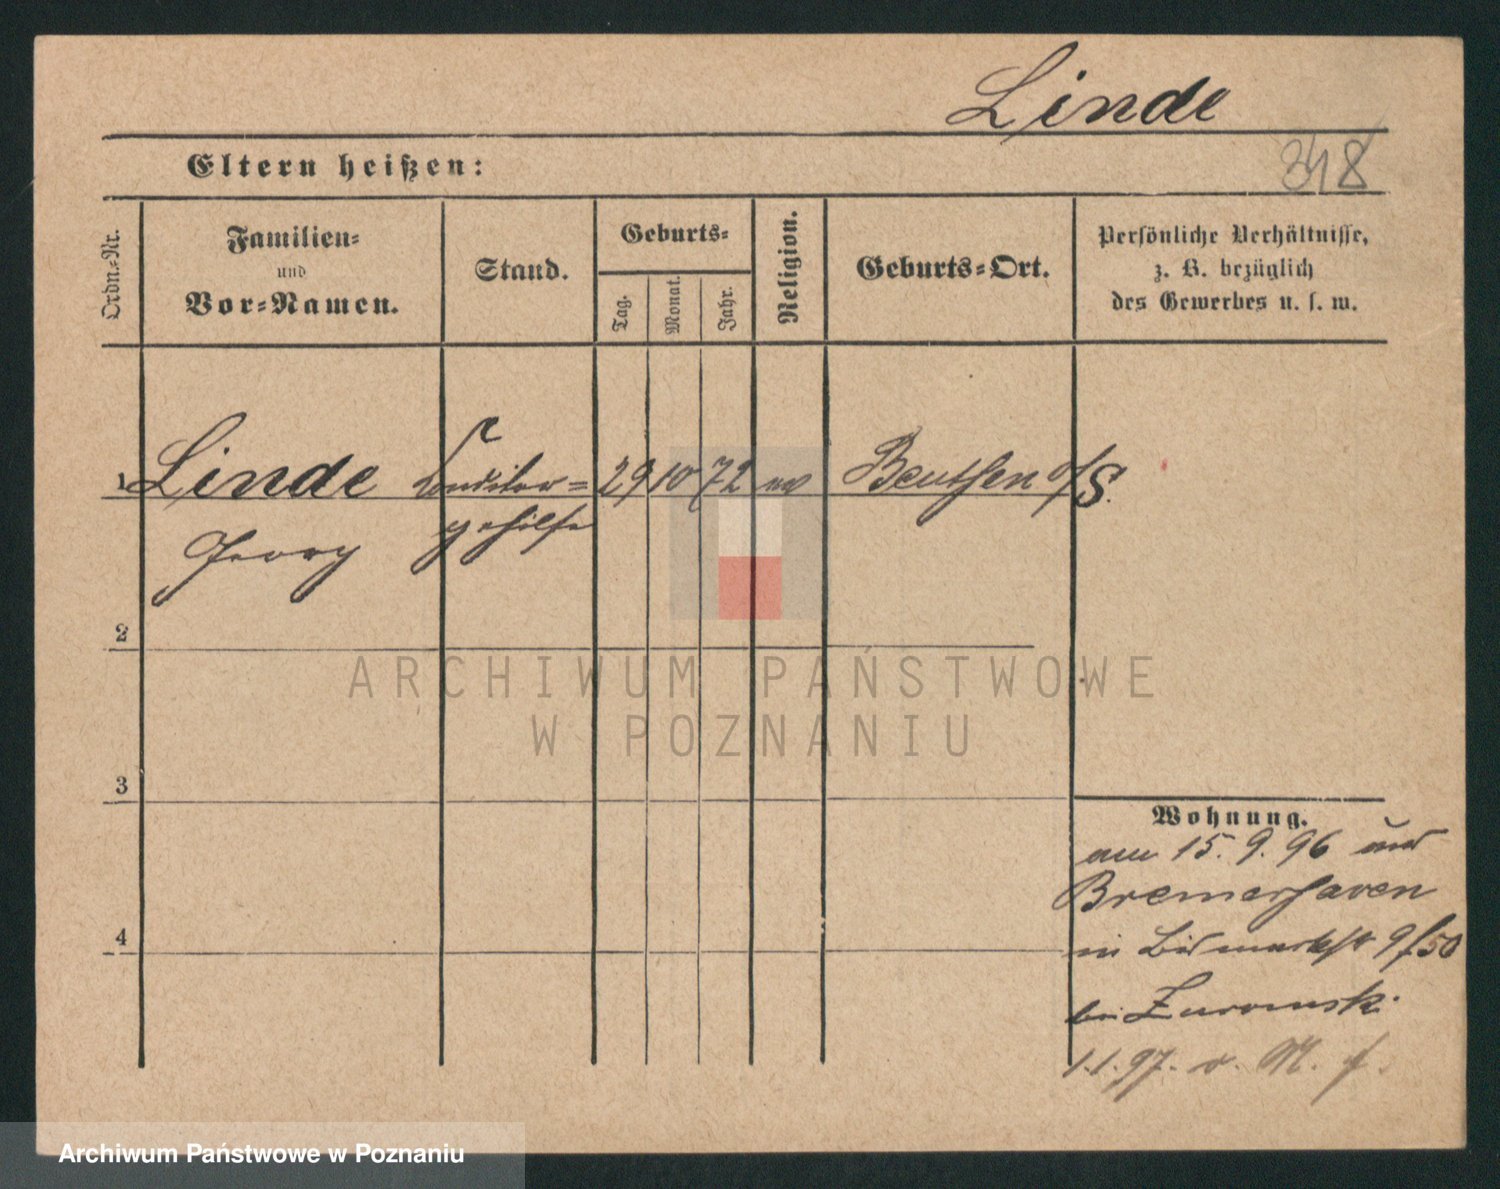 Linde
348
Eltern heißen:
Ordn.-Nr.
Familien-
und
Vor-Namen.
Stand.
Geburts-
Tag.
Monat.
Jahr.
Religion.
Geburts-Ort.
Persönliche Verhältnisse,
z. B. bezüglich
des Gewerbes u. s. w.
1 Linde Conditor- 29 10 72 ev Beuthen o/S.
Georg gehilfe
2
ARCHIWUM PAŃSTWOWE
W POZNANIU
3
Wohnung.
am 15. 9. 96 aus
Bremerhaven
in Bismarckstr 9 / 50
4
bei Zuromski
1.1.97. v. M. f.
Archiwum Państwowe w Poznaniu